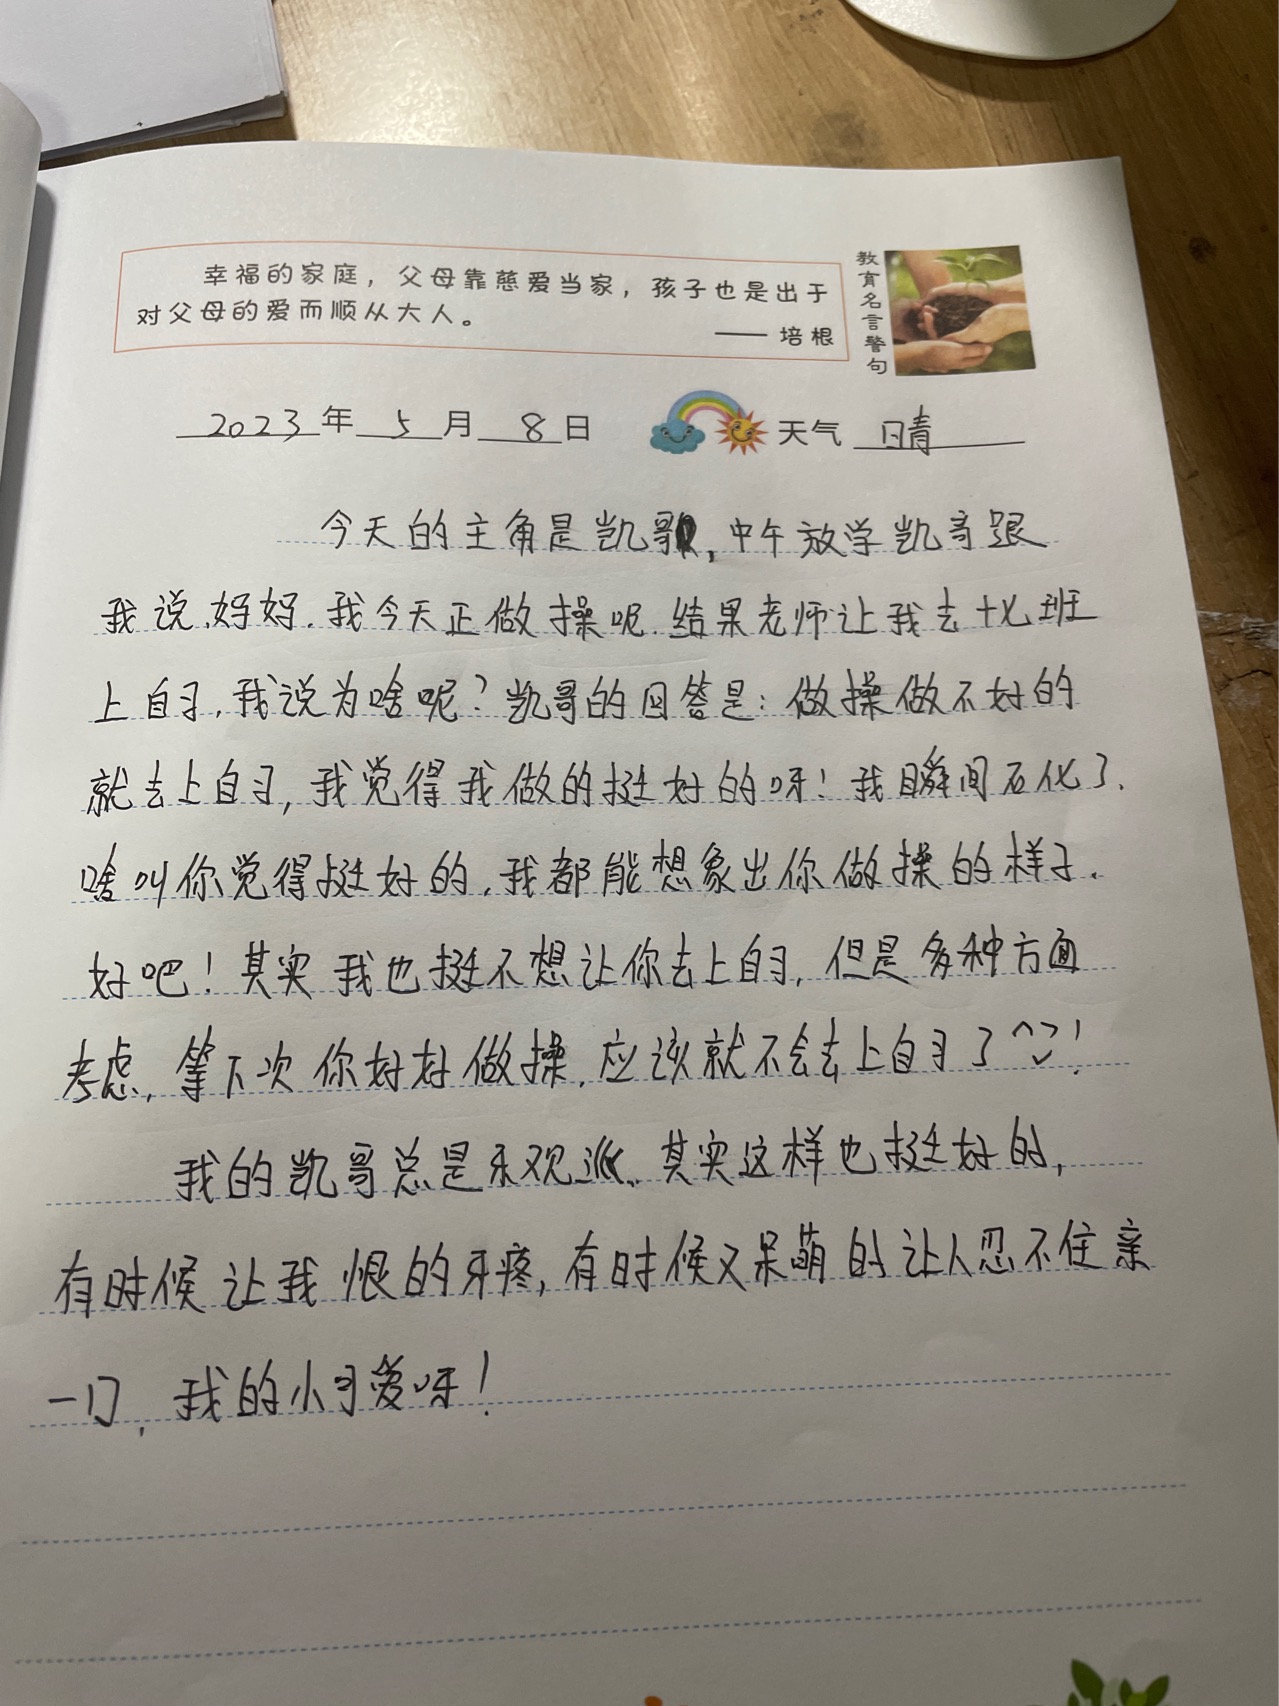 幸福的家庭，父母靠慈爱当家，孩子也是出于
对父母的爱而顺从大人。
—— 培根
教育名言警句
2023年 5月 8日 天气 晴
今天的主角是凯哥，中午放学凯哥跟
我说，妈妈，我今天正做操呢，结果老师让我去十七班
上自习，我说为啥呢？凯哥的回答是：做操做不好的
就去上自习，我觉得我做的挺好的呀！我瞬间石化了，
啥叫你觉得挺好的，我都能想象出你做操的样子，
好吧！其实我也挺不想让你去上自习，但是多种方面
考虑，等下次你好好做操，应该就不会去上自习了！
我的凯哥总是乐观派，其实这样也挺好的，
有时候让我恨的牙疼，有时候又呆萌的让人忍不住亲
一口，我的小可爱呀！